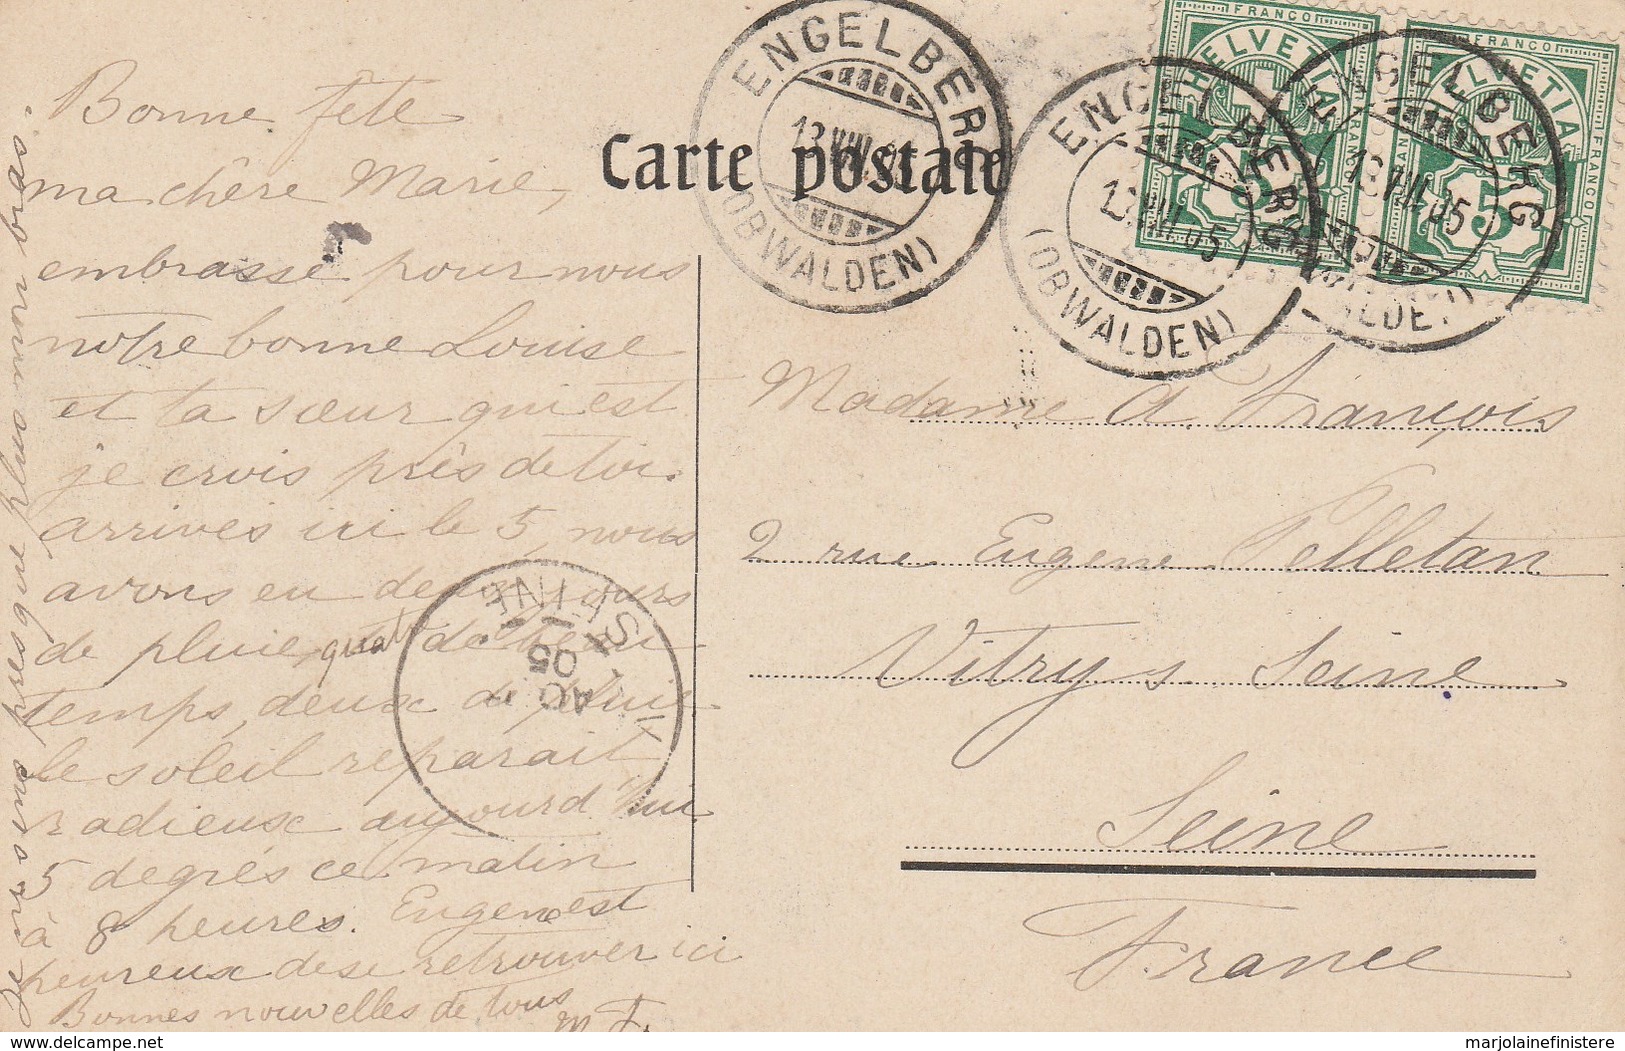 Carte postale
ENGELBERG
13.VIII.05
(OBWALDEN)
ENGELBERG
13.VIII.05
(OBWALDEN)
ENGELBERG
13.VIII.05
FRANCO
HELVETIA
5
FRANCO
HELVETIA
5
FRANCO
Bonne fête
ma chère Marie,
embrasse pour nous
notre bonne Louise
et ta sœur qui est
je crois près de toi.
arrivés ici le 5, nous
avons eu deux jours
de pluie, quatre de beau
temps, deux de pluie
le soleil reparait
radieux aujourd'hui
5 degrés ce matin
à 8 heures. Eugene est
heureux de se retrouver ici
Bonnes nouvelles de tous
M F.
Je ne suis presque plus mon bras.
SEINE
AOU
05
Madame A. François
2 rue Eugene Pelletan
Vitry s. Seine
Seine
France
www.delcampe.net
marjolainefinistere